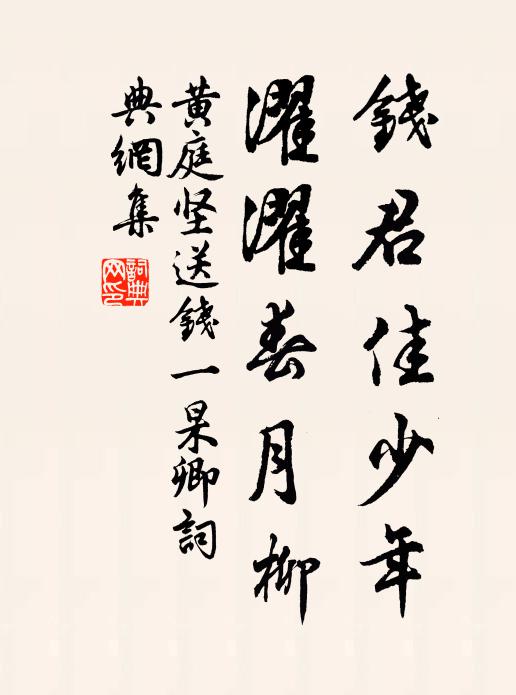 錢君佳少年
濯濯春月柳
黄庭坚送錢一杲卿詞
典網集
詞典
网印